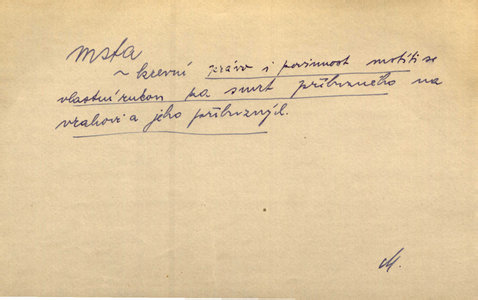 msta
~ krevní právo i povinnost mstíti se
vlastní rukou za smrt příbuzného na
vrahovi a jeho příbuzných.
M.